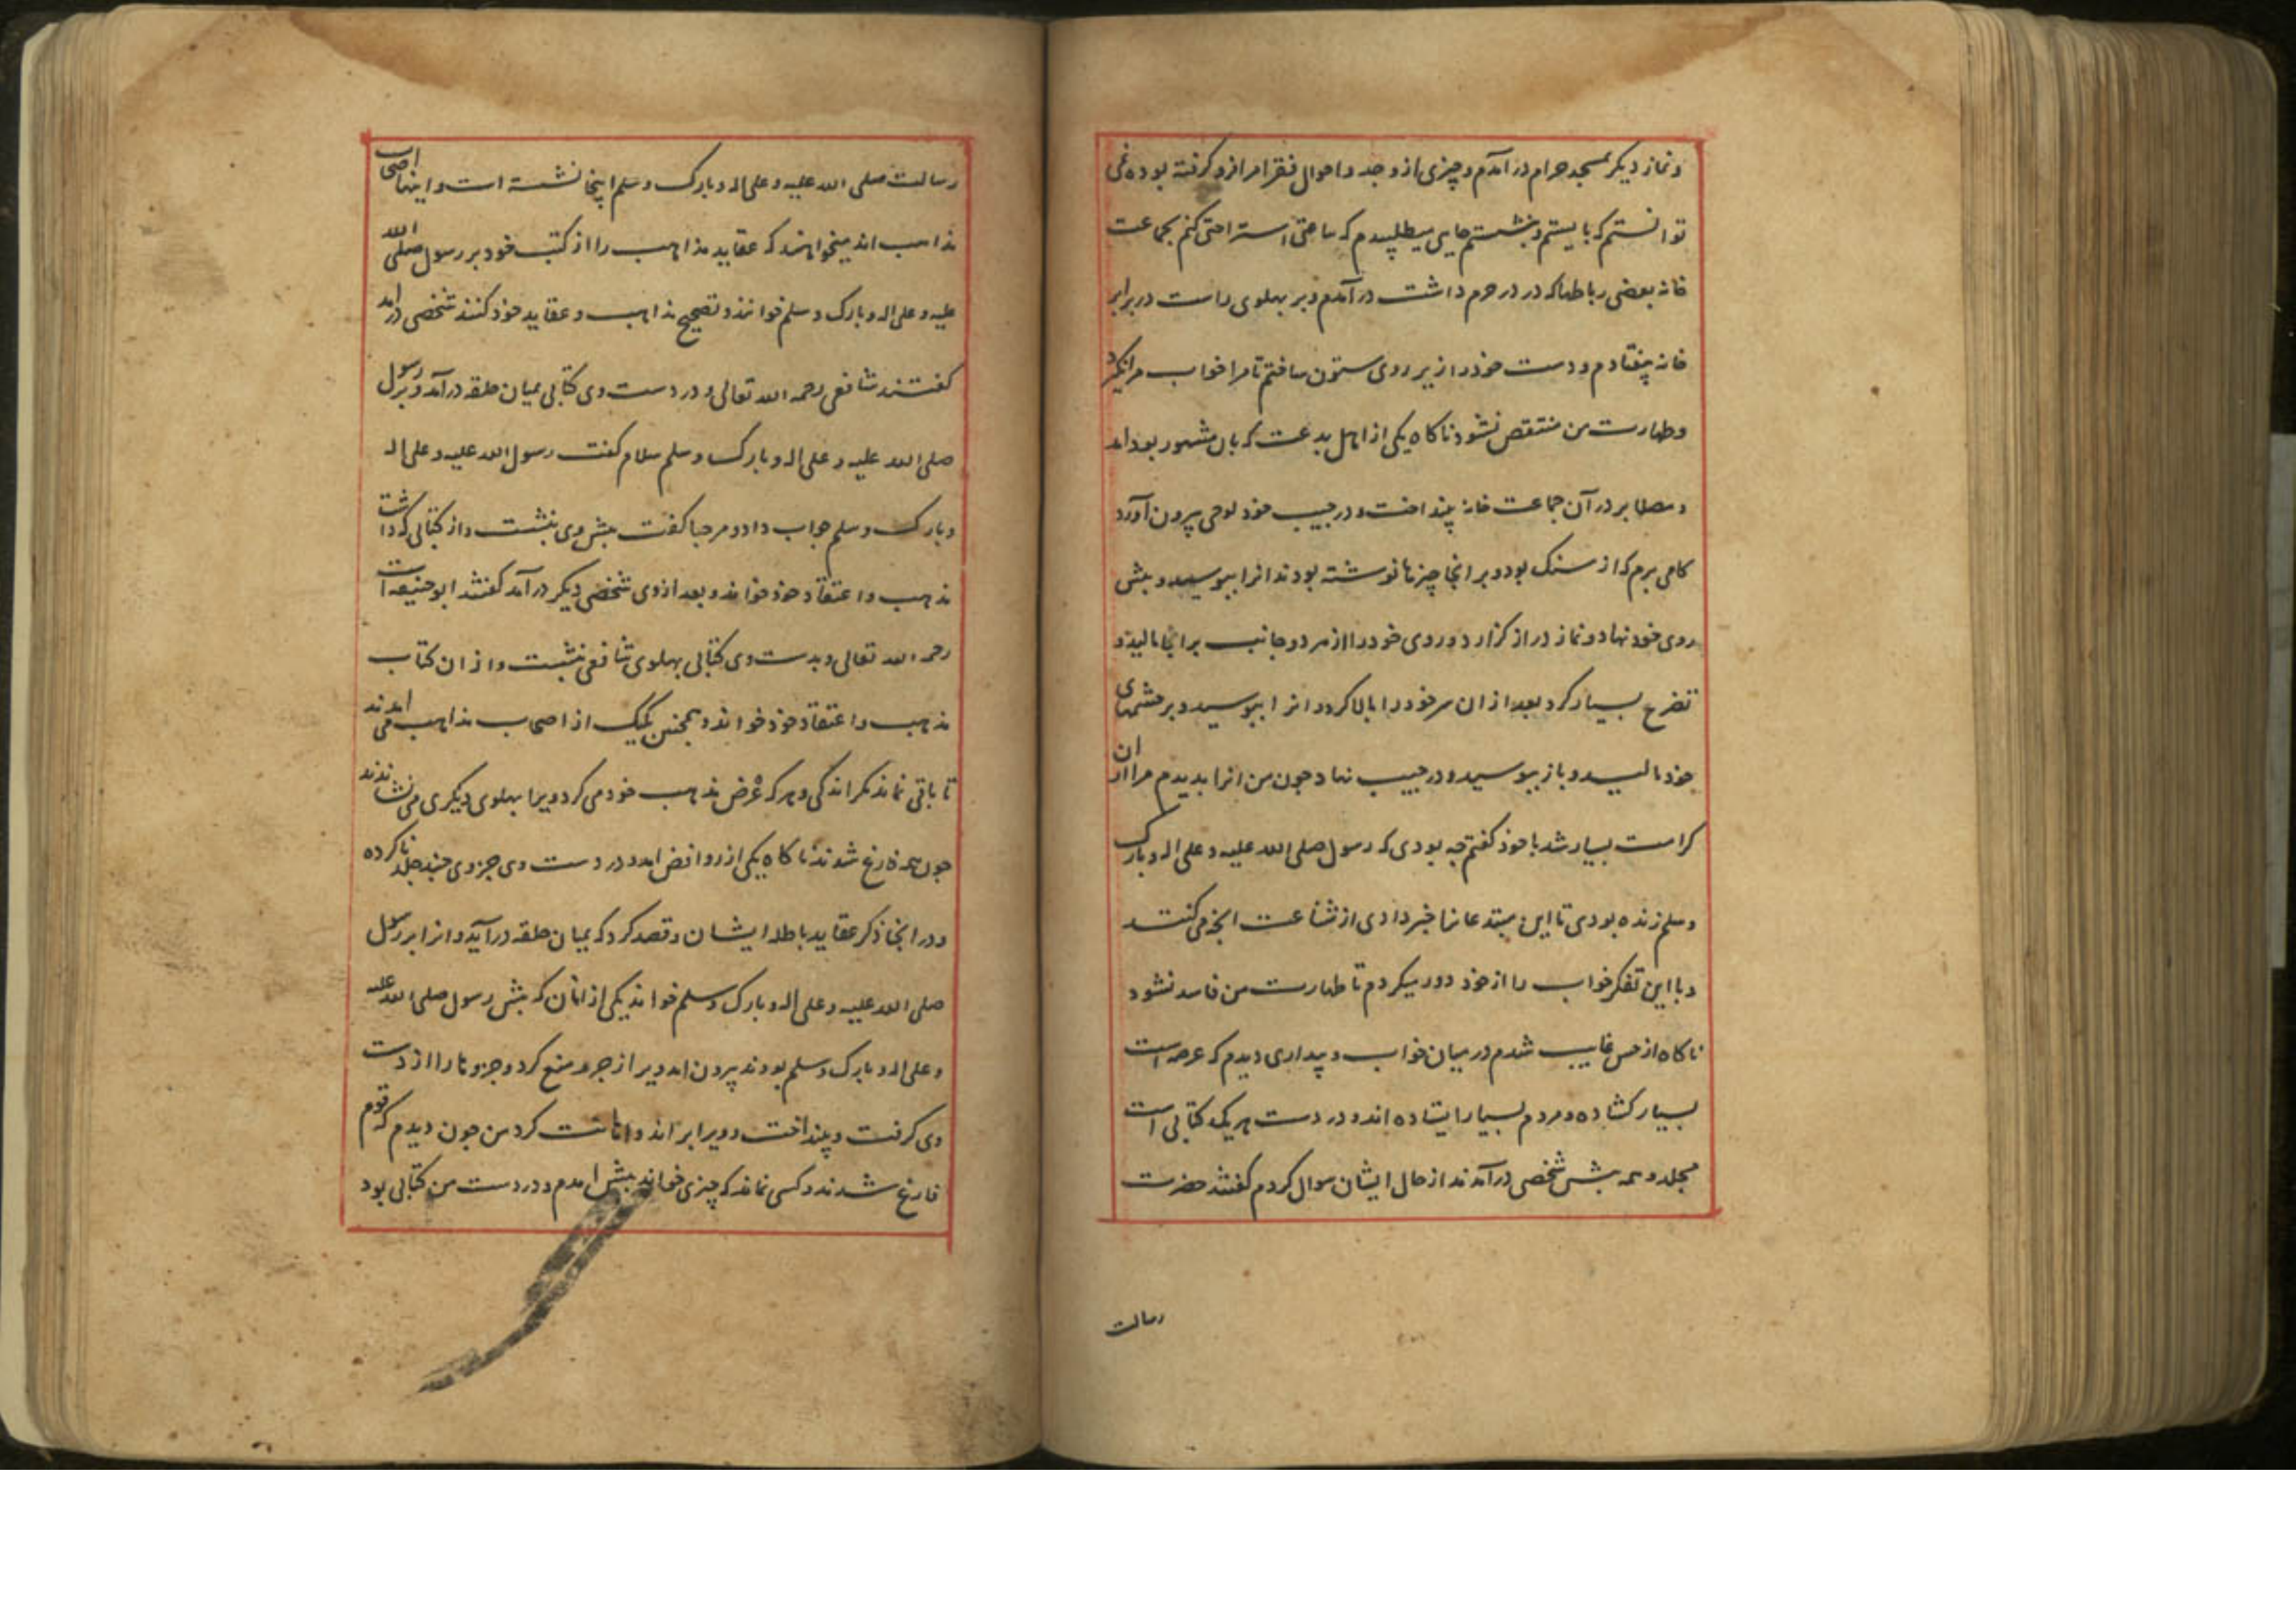 ونماز دیکر بمسجد حرام در آمدم و چیزی از وجد و احوال فقرا مرا فرو کرفته بود نمی
توانستم که بایستم و بنشستم جایی میطلبیدم که ساعتی استراحتی کنم بجماعت
خانه بعضی رباطها که در در حرم داشت در آمدم و بر پهلوی راست در برابر
خانه بیفتادم و دست خود را زیر روی ستون ساختم تا مرا خواب مرا نکیرد
وطهارت من منتقص نشود ناکاه یکی از اهل بدعت که بان مشهور بود امد
و مصلا بر در آن جماعت خانه بینداخت و در جیب خود لوحی بیرون آورد
کامی برم که از سنک بود و بر انجا چیزها نوشته بودند انرا ببوسید و بیش
روی خود نهاد و نماز دراز کزارد و روی خود را از هر دو جانب بر انجا مالید و
تضرع بسیار کرد بعد از ان سر خود را بالا کرد و انرا ببوسید و بر چشمهای
خود مالید و باز ببوسید و در جیب نهاد جون من انرا بدیدم مرا از ان
کراهت بسیار شد با خود کفتم چه بودی که رسول صلی الله علیه و علی اله و بارک
وسلم زنده بودی تا این مبتدعانرا خبر دادی از شناعت انچه می کنند
و با این تفکر خواب را از خود دور میکردم تا طهارت من فاسد نشود
ناکاه از حس غایب شدم در میان خواب و بیداری دیدم که عرصه است
بسیار کشاده و مردم بسیار ایستاده اند و در دست هر یک کتابی است
مجلد و همه بیش شخصی در آمدند از حال ایشان سوال کردم کفتند حضرت
رسالت
رسالت صلی الله علیه و علی اله و بارک و سلم اینجا نشسته است و اینها اصحاب
مذاهب اند میخواهند که عقاید مذاهب را از کتب خود بر رسول صلی الله
علیه و علی اله و بارک و سلم خوانند و تصحیح مذاهب و عقاید خود کنند شخصی در امد
کفتند شافعی رحمه الله تعالی و در دست وی کتابی بمیان حلقه در آمد و بر رسول
صلی الله علیه و علی اله و بارک و سلم سلام کفت رسول الله علیه و علی اله
وبارک و سلم جواب داد و مرحبا کفت بیش وی بنشست و از کتابی که داشت
مذهب و اعتقاد خود خواند و بعد از وی شخصی دیکر در آمد کفتند ابو حنیفه است
رحمه الله تعالی و بدست وی کتابی پهلوی شافعی نشست و از ان کتاب
مذهب و اعتقاد خود خواند و همجنین یکیک از اصحاب مذاهب می امدند
تا باقی نماند مکر اندکی و هر که عرض مذهب خود می کرد ویرا پهلوی دیکری می نشاندند
جون همه فارغ شدند ناکاه یکی از روافض امد و در دست وی جزوی چند جلد ناکرده
و در انجا ذکر عقاید باطله ایشان و قصد کرد که بمیان حلقه در آید و انرا بر رسول
صلی الله علیه و علی اله و بارک و سلم خواند یکی از انان که بیش رسول صلی الله علیه
و علی اله و بارک و سلم بودند بیرون امد و یرا زجر و منع کرد و جزوها را از دست
وی کرفت و بینداخت و ویرا براند و اهانت کرد من جون دیدم که قوم
فارغ شدند و کسی نماند که چیزی خواند بیش امدم و در دست من کتابی بود